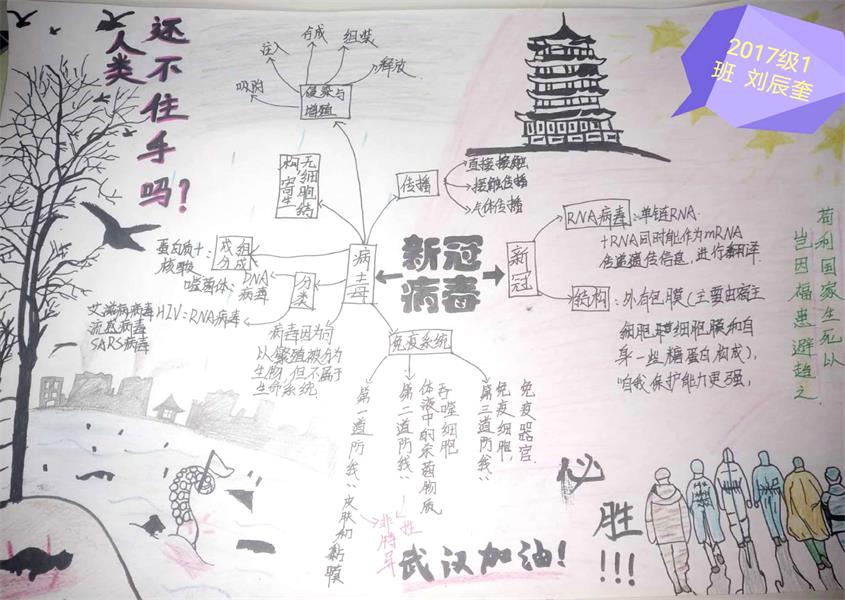 人类
还不住手吗?
2017级1
班 刘辰奎
注入
合成
组装
释放
吸附
侵染与
增殖
无细胞结
构,寄生
传播
直接接触
接触传播
病毒
蛋白质+
核酸
组成
成分
分类
噬菌体:DNA
病毒
艾滋病病毒HIV:RNA病毒
流感病毒
SARS病毒
病毒因为可
以繁殖被分为
生物,但不属于
生命系统
新冠
病毒
新冠
RNA病毒:单链RNA
+RNA同时能作为mRNA
传递遗传信息,进行翻译.
结构:外有包膜(主要由宿主
细胞膜细胞膜和自
身一些糖蛋白构成),
自我保护能力更强,
免疫系统
第一道防线:皮肤和黏膜
第二道防线:
体液中的杀菌物质
吞噬细胞
第三道防线:
免疫细胞,
免疫器官
非特异
性
苟利国家生死以
岂因福患避趋之
武汉加油!
必
胜
!!!